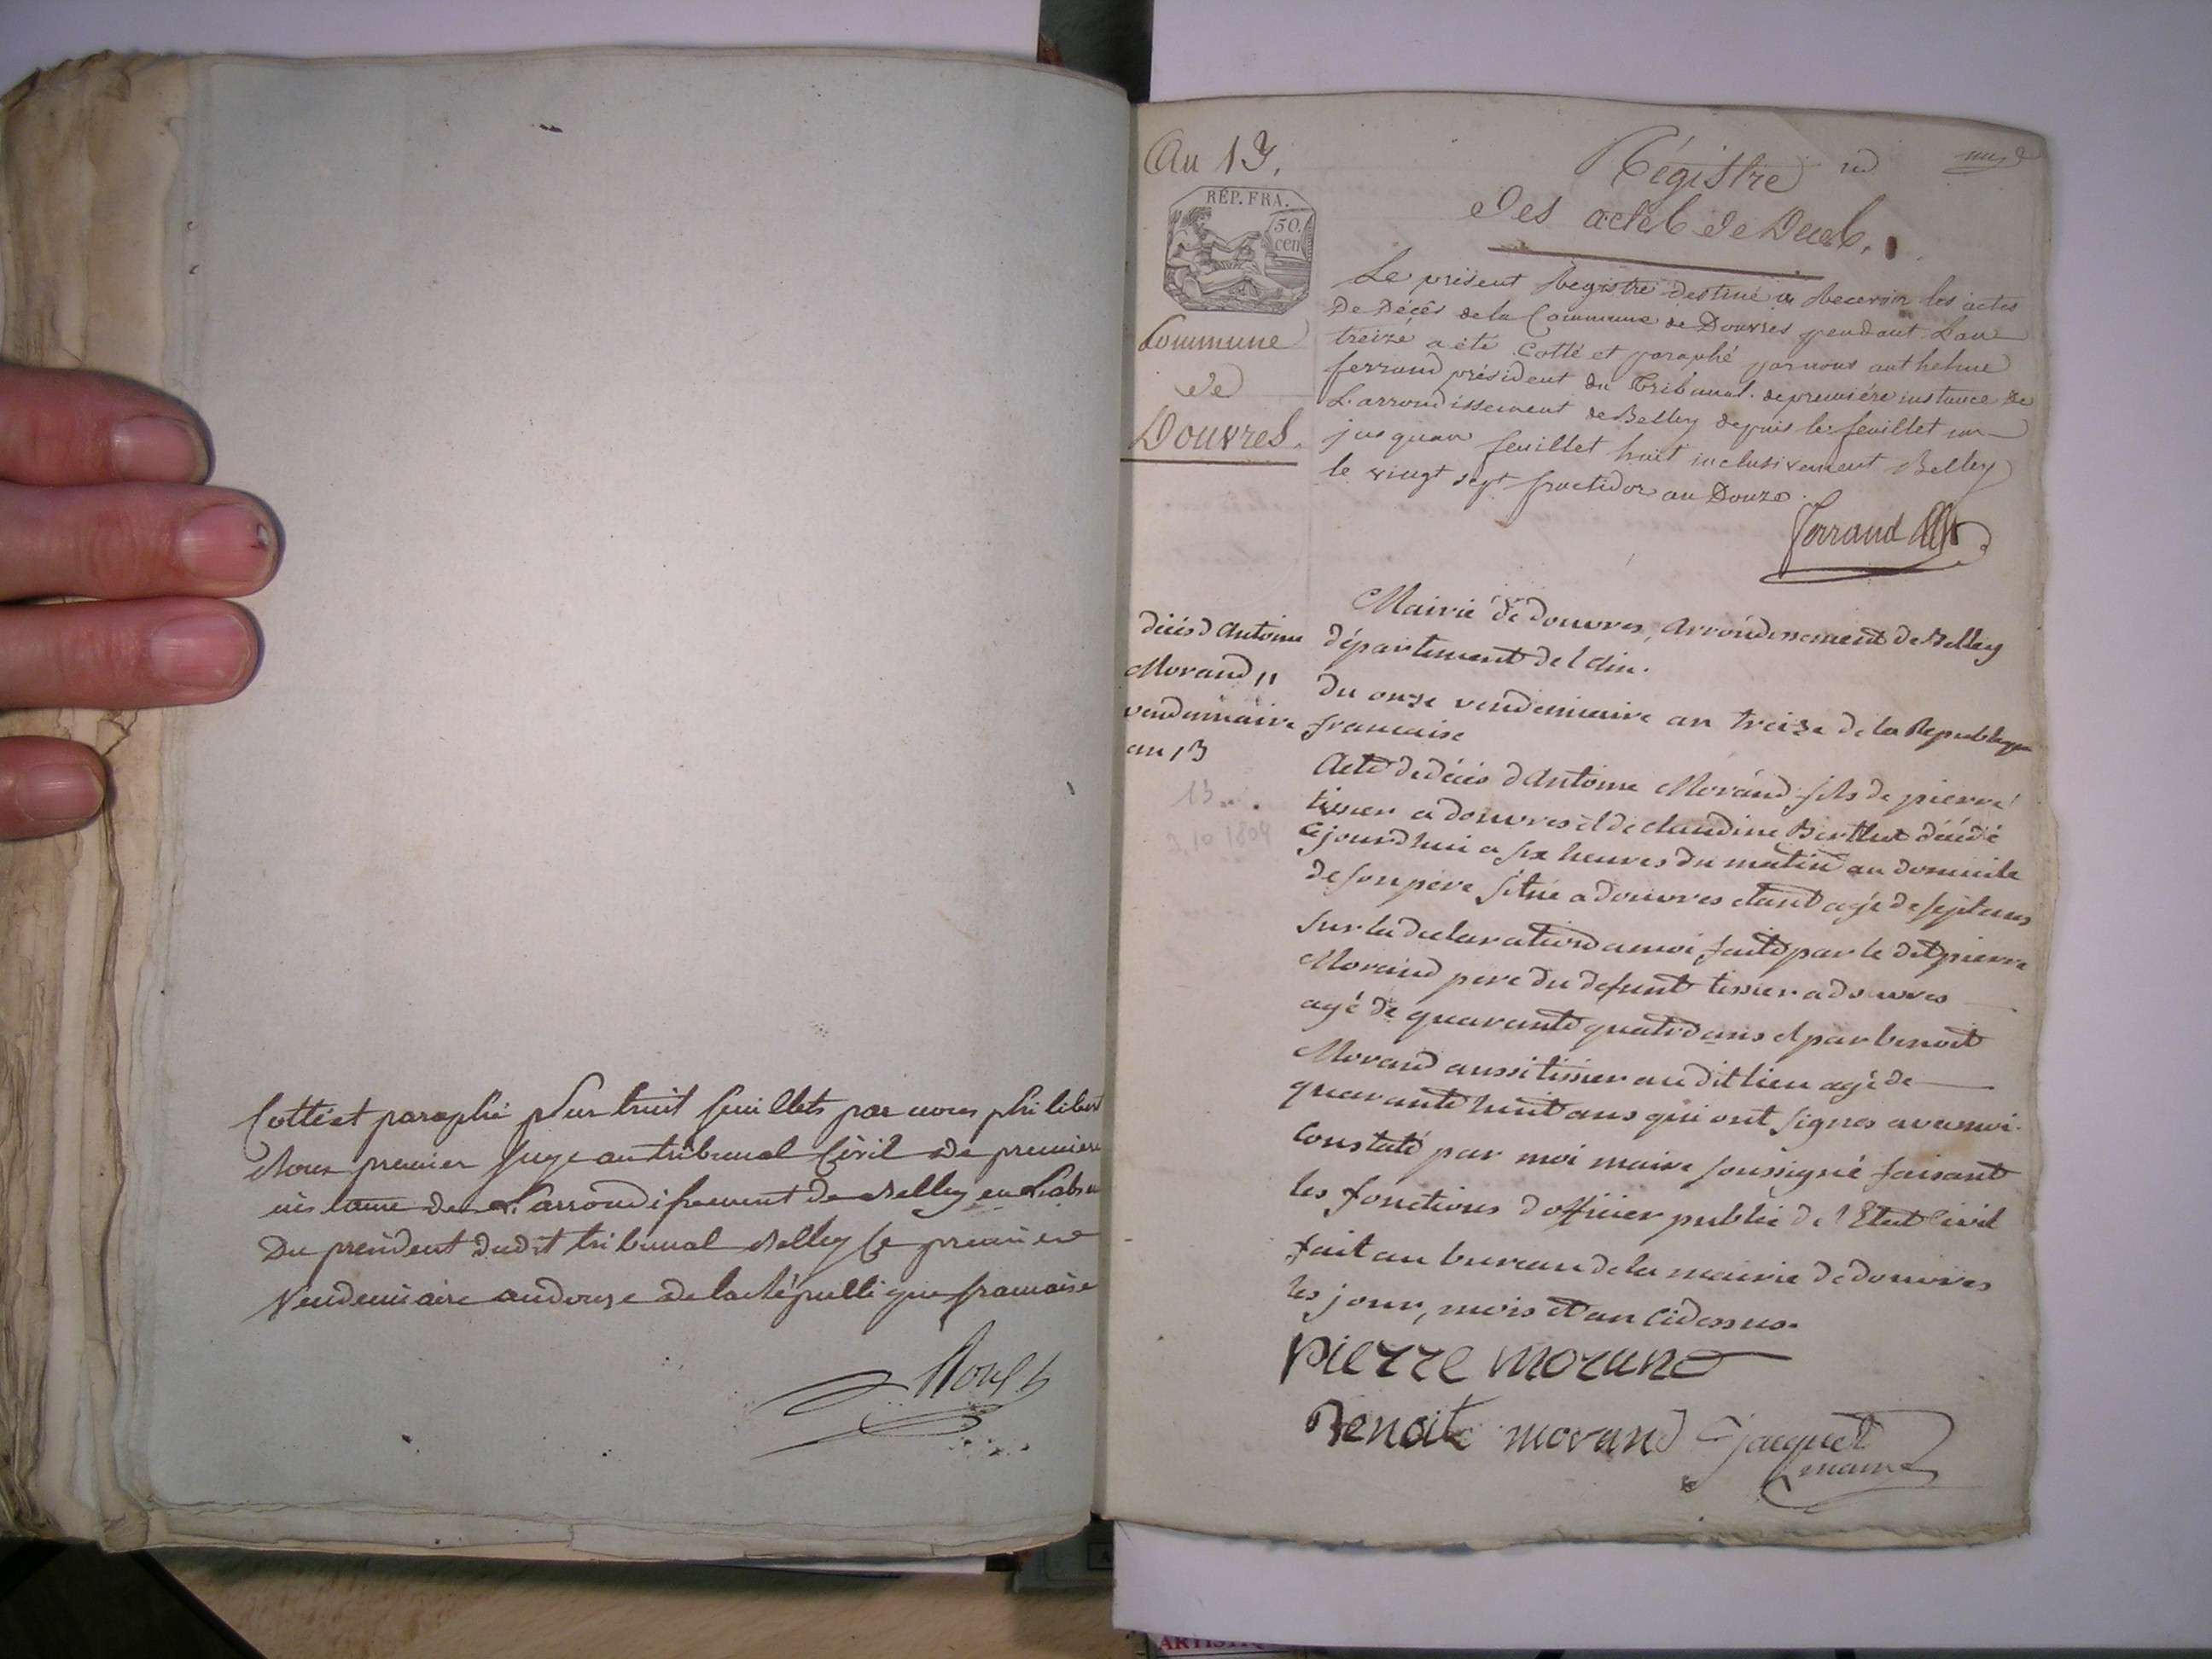 Cotté et paraphé sur huit feuillets par nous philibert
premier Juge au tribunal Civil de premiere
instance de L'arrondissement de Belley en L'absence
Du president dudit tribunal Belley le premier
Vendemiaire an douze de la République française
An 13.
RÉP. FRA.
50.
cen
Commune
de
Douvres.
Régistre
Des actes de Deces.
Le présent Registre destiné a Recevoir les actes
De Décès de la Commune de Douvres pendant L'an
treize a été Cotté et paraphé par nous anthelme
ferrand président du Tribunal de première instance de
L'arrondissement de Belley depuis le feuillet un
jusqu'au feuillet huit inclusivement Belley
le vingt sept fructidor an Douze.
Ferrand
décès d'Antoine
Morand 11
vendemiaire
an 13
13
3 10 1804
Mairie de douvres, Arrondissement de Belley
département de l'Ain.
Du onze vendemiaire an treize de la Republique
francaise
Acte de décès d'Antoine Morand fils de pierre
tissier a douvres et de claudine Berthet décédé
cejourdhui a six heures du matin au domicile
de son père situé a douvres etant agé de sept ans
sur la declaration a moi faite par le dit pierre
Morand pere du defunt tissier a douvres
agé de quarante quatre ans et par benoit
Morand aussi tissier au dit lieu agé de
quarante huit ans qui ont signes avec moi.
Constaté par moi maire soussigné faisant
les fonctions d'officier public de l'Etat Civil
fait au bureau de la mairie de douvres
les jour, mois et an cidessus.
pierre morand
Benoit morand jacquet
maire